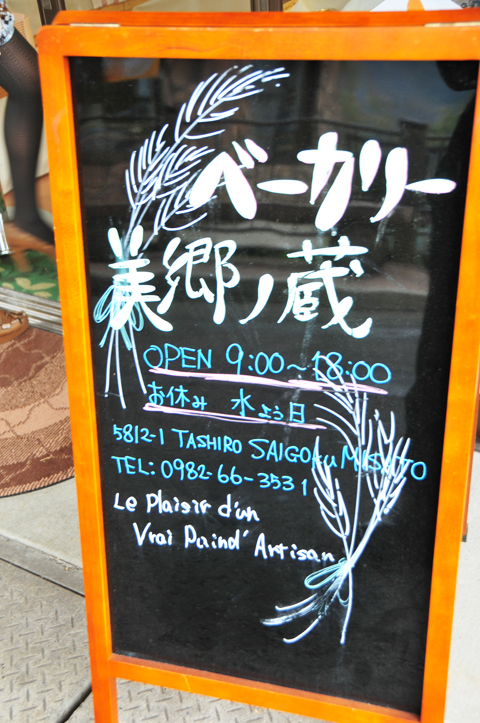 ベーカリー
美郷ノ蔵
OPEN 9:00～18:00
お休み 水よう日
5812-1 TASHIRO SAIGOKU MISATO
TEL: 0982-66-3531
Le Plaisir d'un
Vrai Paind' Artisan